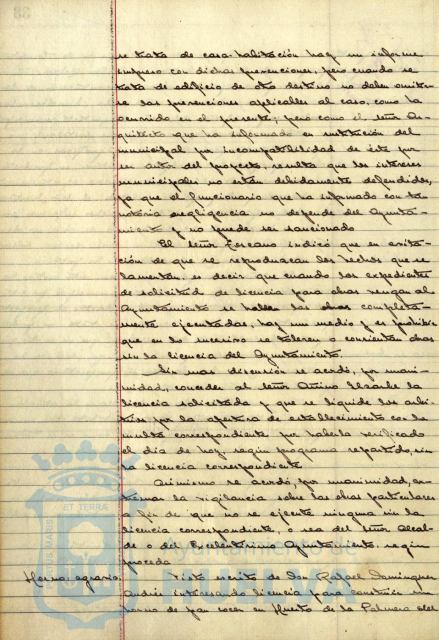 se trata de casa-habitación hay un informe
impreso con dichas prevenciones, pero cuando se
trata de edificio de otro destino no deben omitir-
se las prevenciones applicables al caso, como ha
ocurrido en el presente; pero como el señor Ar-
quitecto que ha informado en sustitución del
municipal por incompatibilidad de éste por
ser autor del proyecto, resulta que los intereses
municipales no están debidamente defendidos,
ya que el funcionario que ha informado con tan
notoria negligencia no depende del Ayunta-
miento y no puede ser sancionado
El señor Lorcano indicó que en evita-
ción de que se reproduzcan los hechos que se
lamentan, es decir que cuando los expedientes
de solicitud de licencia para obras vengan al
Ayuntamiento se hallen las obras completa-
mente ejecutadas, hay un medio y es prohibir
que en lo sucesivo se toleren o consientan obras
sin la licencia del Ayuntamiento.
Sin mas discusión se acordó, por unani-
midad, conceder al señor Elzarbe la
licencia solicitada y que se liquide los arbi-
trios por la apertura de establecimiento con la
multa correspondiente por haberla verificado
el día de hoy, según programa repartido, sin
la licencia correspondiente
Asimismo se acordó, por unanimidad, ex-
tremar la vigilancia sobre las obras particulares
a fin de que no se ejecute ninguna sin la
licencia correspondiente, o sea del señor Alcal-
de o del Excelentísimo Ayuntamiento, según
proceda
Horno: agrario. Visto escrito de Don Rafael Dominguez
Andrés interesando licencia para construir un
horno de pan cocer en Huerto de la Palmera del
PORTUS MARIS ET TERRAE
Ayuntamiento de
HUELVA